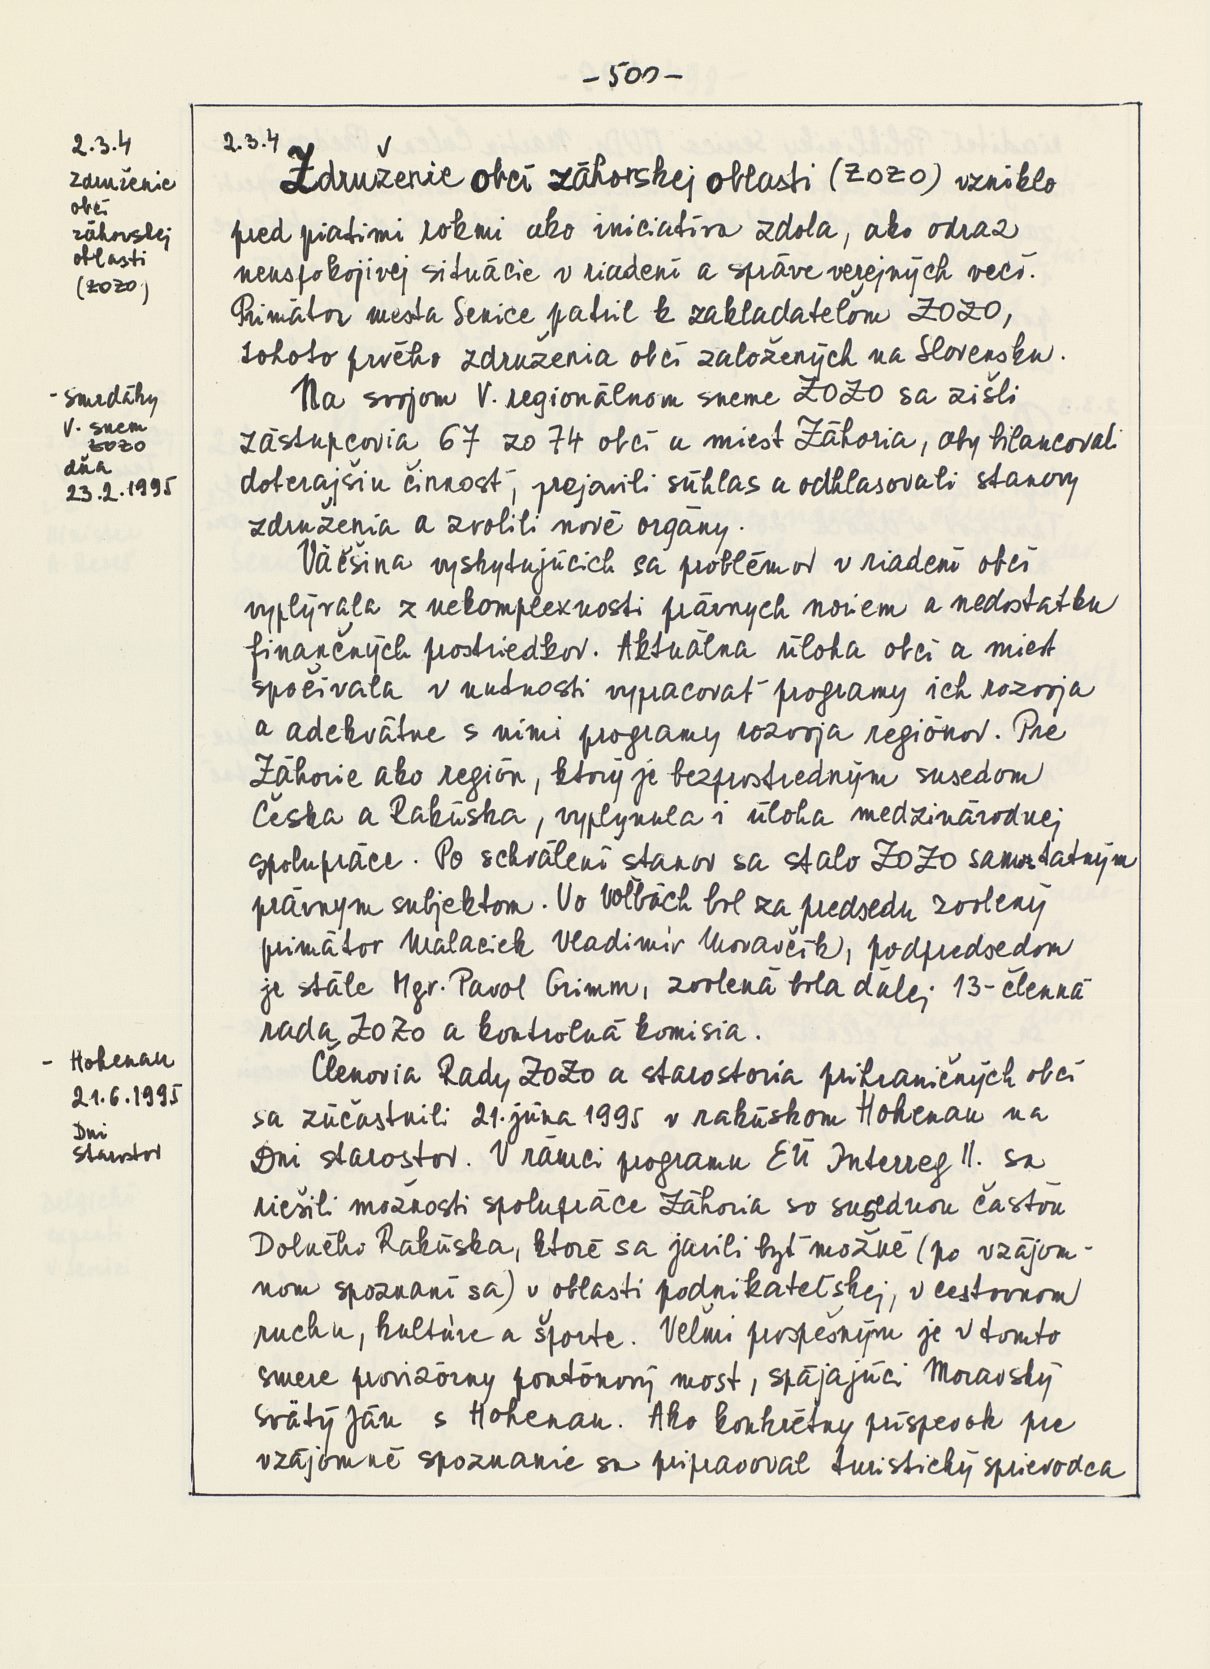 - 500 -
2.3.4
Združenie
obcí
záhorskej
oblasti
(ZOZO)
2.3.4
Združenie obcí záhorskej oblasti (ZOZO) vzniklo
pred piatimi rokmi ako iniciatíva zdola, ako odraz
neuspokojivej situácie v riadení a správe verejných vecí.
Primátor mesta Senice patril k zakladateľom ZOZO,
tohoto prvého združenia obcí založených na Slovensku.
- Smrdáky
V. snem
ZOZO
dňa
23.2.1995
Na svojom V. regionálnom sneme ZOZO sa zišli
zástupcovia 67 zo 74 obcí a miest Záhoria, aby bilancovali
doterajšiu činnosť, prejavili súhlas a odhlasovali stanovy
združenia a zvolili nové orgány.
Väčšina vyskytujúcich sa problémov v riadení obcí
vyplývala z nekomplexnosti právnych noriem a nedostatku
finančných postriedkov. Aktuálna úloha obcí a miest
spočívala v nutnosti vypracovať programy ich rozvoja
a adekvátne s nimi programy rozvoja regiónov. Pre
Záhorie ako región, ktorý je bezprostredným susedom
Česka a Rakúska, vyplynula i úloha medzinárodnej
spolupráce. Po schválení stanov sa stalo ZOZO samostatným
právnym subjektom. Vo voľbách bol za predsedu zvolený
primátor Malaciek Vladimír Moravčík, podpredsedom
je stále Mgr. Pavol Grimm, zvolená bola ďalej 13-členná
rada ZOZO a kontrolná komisia.
- Hohenau
21.6.1995
Dni
starostov
Členovia Rady ZOZO a starostovia prihraničných obcí
sa zúčastnili 21. júna 1995 v rakúskom Hohenau na
Dni starostov. V rámci programu EÚ Interreg II. sa
riešili možnosti spolupráce Záhoria so susednou časťou
Dolného Rakúska, ktoré sa javili byť možné (po vzájom-
nom spoznaní sa) v oblasti podnikateľskej, v cestovnom
ruchu, kultúre a športe. Veľmi prospešným je v tomto
smere provizórny pontónový most, spájajúci Moravský
svätý Ján s Hohenau. Ako konkrétny príspevok pre
vzájomné spoznanie sa pripravoval turistický sprievodca